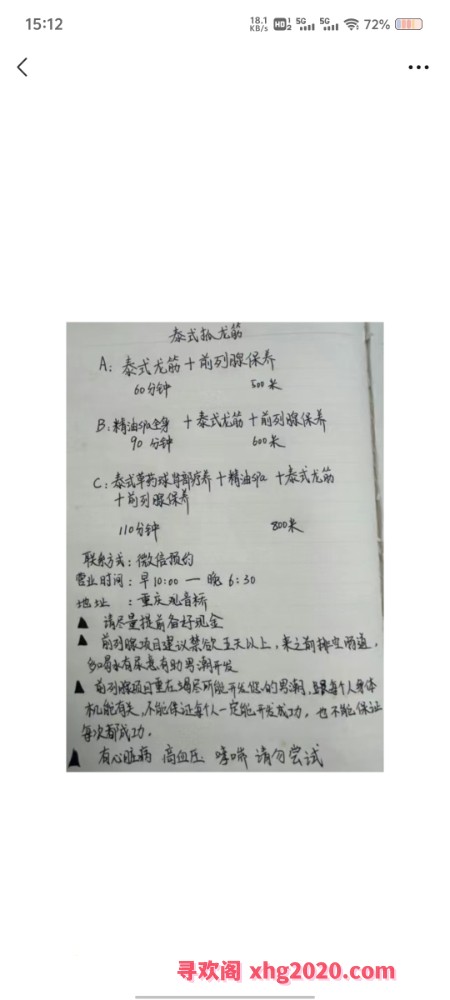 15:12
18.1 KB/s HD 1 2 5G 5G 72%
泰式抓龙筋
A: 泰式龙筋+前列腺保养
60分钟 500米
B: 精油spa全身 +泰式龙筋+前列腺保养
90 分钟 600米
C: 泰式草药球背部疗养+精油spa +泰式龙筋
+前列腺保养
110分钟 800米
联系方式: 微信预约
营业时间: 早10:00 — 晚 6:30
地址 : 重庆观音桥
▲ 请尽量提前备好现金
▲ 前列腺项目建议禁欲五天以上,来之前排空肠道,
多喝水有尿意有助男潮开发
▲ 前列腺项目重在竭尽所能开发您的男潮,跟每个人身体
机能有关,不能保证每个人一定能开发成功,也不能保证
每次都成功.
▲ 有心脏病 高血压 哮喘 请勿尝试
寻欢阁 xhg2020.com